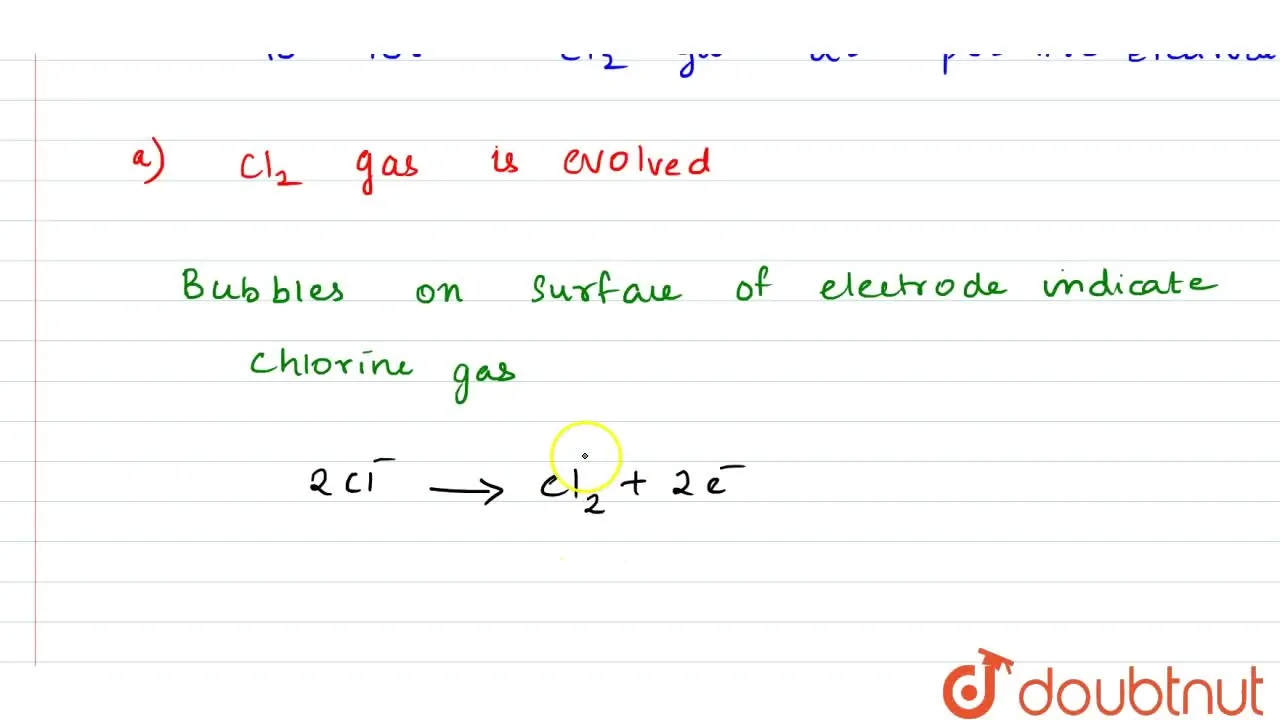 Cl2 gas
a) Cl2 gas is evolved
Bubbles on surface of electrode indicate
Chlorine gas
2Cl⁻ → Cl2 + 2e⁻
doubtnut